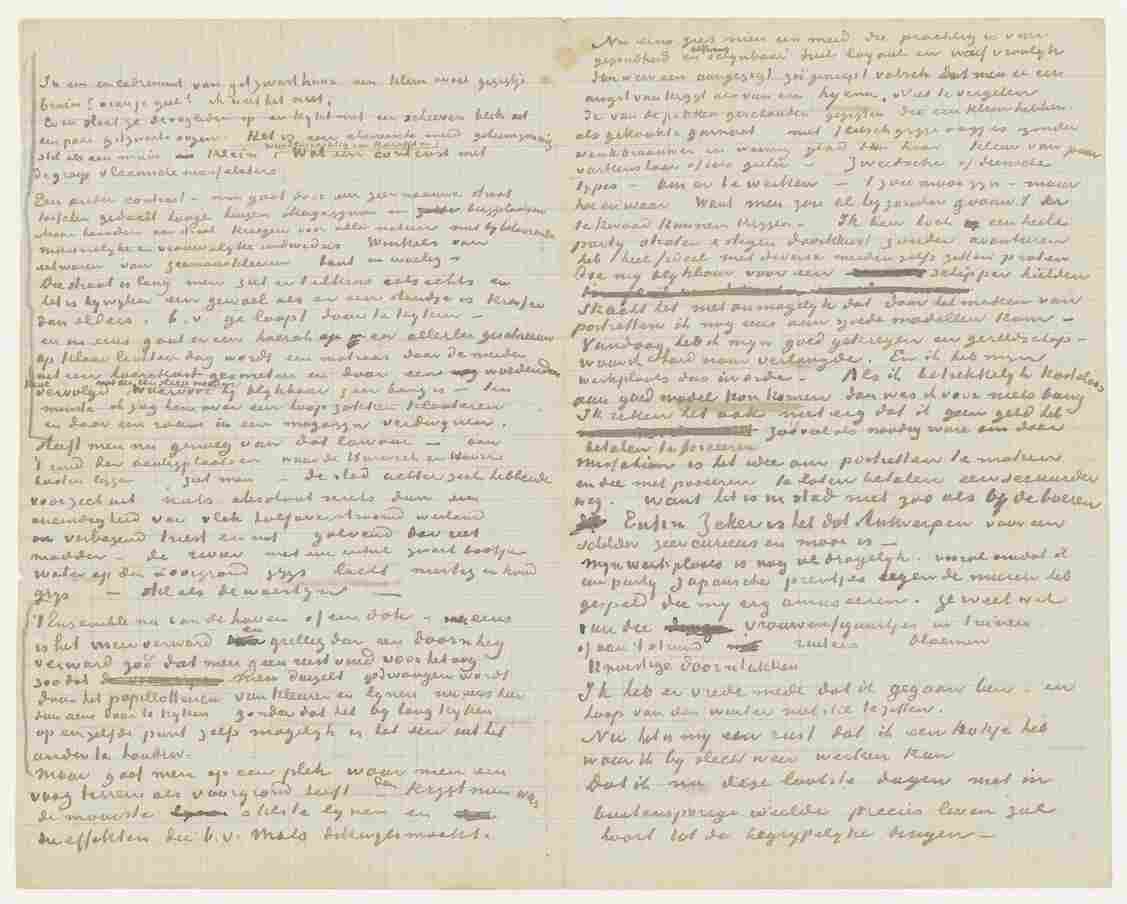 In een encadrement van gitzwart haar een klein ovaal gezigtje
bruin? oranje geel? ik weet het niet.
Even slaat ze de oogleden op en kijkt met een scheeven blik uit
een paar gitzwarte oogen. Het is een chineesche meid geheimzinnig
stil als een muis
klein
Wat een contrast met
de groep vlaamsche mosseleters.
Een ander contrast – men gaat door een zeer naauwe straat
tusschen geducht hooge huizen Magazijnen en bergplaatsen
Maar beneden in de straat kroegen voor alle natien met bijbehoorende
mannelijke en vrouwelijke individu's Winkels van
eetwaren van zeemanskleeren bont en woelig –
Die straat is lang men ziet er telkens iets echts en
het is bij wijlen een gewoel als er een standje is krasser
dan elders. b.v. ge loopt daar te kijken –
en in eens gaat er een hoerah op en allerlei geschreeuw
op klaar lichten dag wordt een matroos door de meiden
uit een hoerekast gesmeten en door een woedenden
vervolgd waarvoor hij blijkbaar zeer bang is – ten
minste ik zag hem over een hoop zakken klauteren
en door een raam in een magazijn verdwijnen.
Heeft men nu genoeg van dat lawaai – aan
't eind der aanlegplaatsen waar de Harwich en Havre
booten liggen – ziet men – de stad achter zich hebbende
voor zich uit niets absoluut niets dan een
oneindigheid van vlak half overstroomd weiland
verbazend triest en nat golvend dor riet
modder – de rivier met een enkel zwart bootje
water op den voorgrond grijs lucht mistig en koud
grijs – stil als de woestijn –
't Ensemble nu van de haven of een dok – eens
is het meer verward en grillig dan een doornheg
verward zóó dat men geen rust vind voor het oog
zoodat men duizelt gedwongen wordt
door het papillotteeren van kleuren en lijnen nu eens hier
dan eens daar te kijken zonder dat het bij lang kijken
op eenzelfde punt zelfs mogelijk is het een uit het
ander te houden.
Maar gaat men op een plek waar men een
vaag terrein als voorgrond heeft dan krijgt men weer
de mooiste stilste lijnen en
die effekten die b.v. Mols dikwijls maakt.
Nu eens ziet men een meid die prachtig is van
gezondheid en althans schijnbaar heel loyaal en naif vroolijk
dan weer een aangezigt zóó geniepig valsch dat men er een
angst van krijgt als van een hyena. Niet te vergeten
de van de pokken geschonden gezigten die een kleur hebben
als gekookte garnaal met fletsch grijze oogjes zonder
wenkbraauwen en weinig glad dun haar kleur van puur
varkenshaar of iets geeler – Zweedsche of deensche
types – Om er te werken – 't zou mooi zijn – maar
hoe en waar Want men zou al bijzonder gaauw er
te kwaad kunnen krijgen. – Ik ben toch een heele
partij straten & stegen doorkruist zonder avonturen
heb heel jovial met diverse meiden zelfs zitten praten
die mij blijkbaar voor een schipper hielden
Ik acht het niet onmogelijk dat door het maken van
portretten ik nog eens aan goede modellen kom –
Vandaag heb ik mijn goed gekregen en gereedschap –
waar ik hard naar verlangde. En ik heb mijn
werkplaats dus in orde – Als ik betrekkelijk kosteloos
aan goed model kon komen dan was ik voor niets bang
Ik reken het ook niet erg dat ik geen geld heb
zóóveel als noodig ware om door
betalen te forceeren
Misschien is het idee om portretten te maken
en die met poseeren te laten betalen een secuurder
weg. Want het is in stad niet zoo als bij de boeren
Enfin Zeker is het dat Antwerpen voor een
schilder zeer curieus en mooi is –
Mijn werkplaats is nog al dragelijk. vooral omdat ik
een partij Japansche prentjes tegen de muren heb
gespeld die mij erg amuseeren. Ge weet wel
van die vrouwenfiguurtjes in tuinen
of aan 't strand ruiters bloemen
knoestige doorntakken
Ik heb er vrede mede dat ik gegaan ben – en
hoop van den winter niet stil te zitten.
Nu het is mij een rust dat ik een hokje heb
waar ik bij slecht weer werken kan
Dat ik nu deze laatste dagen niet in
buitensporige weelde precies leven zal
hoort tot de begrijpelijke dingen –